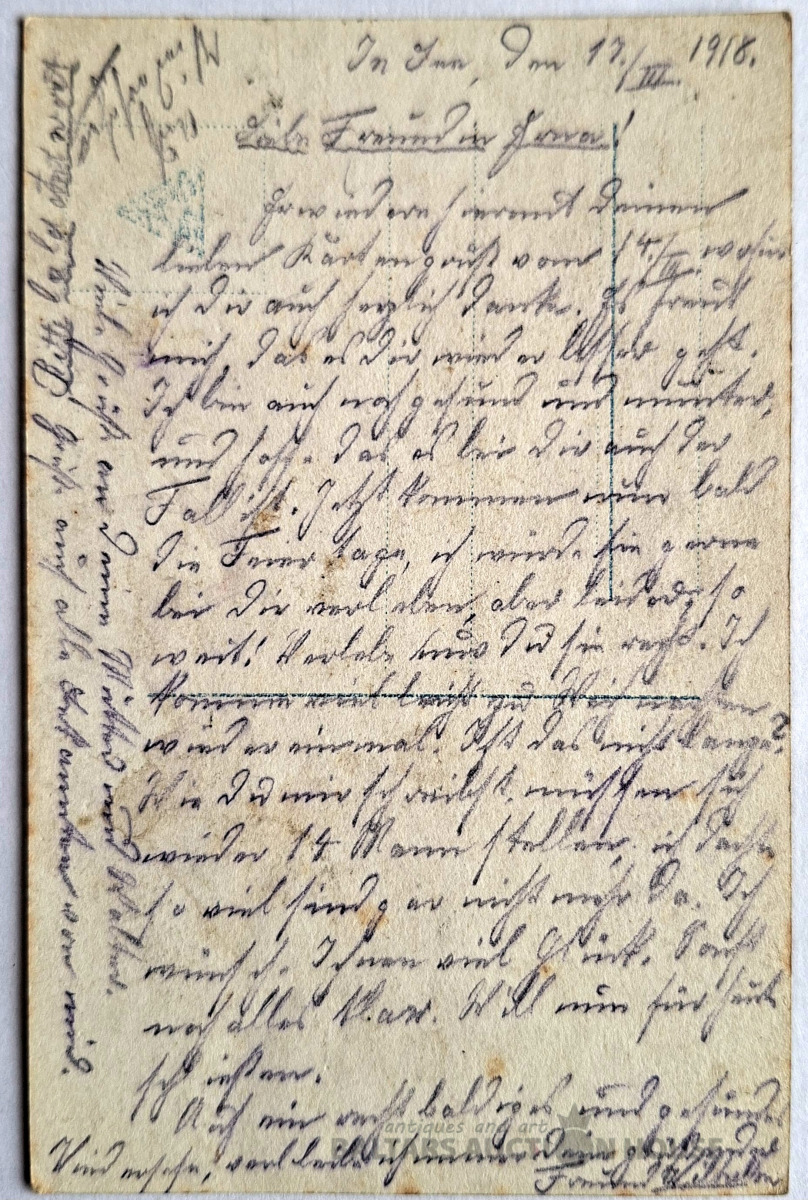 In See, den 17./III. 1918.
Liebe Freundin Erna!
Erwiedere hiermit Deinen
lieben Kartengruß vom 14./III. wofür
ich dir auch herzlich danke. Es freut
mich, das es Dir wieder besser geht.
Ich bin auch noch gesund und munter,
und hoffe das es bei Dir auch der
Fall ist. Jetzt kommen nun bald
die Feiertage, ich würde sie gerne
bei Dir verleben, aber leider, so
weit! Verlebe nur Du sie recht. Ich
komme vielleicht zu
wieder einmal. Ist das nicht lange?
Wie Du mir schreibst, müssen sich
wieder 14 Mann stellen, ich dachte
so viel sind gar nicht mehr da. Ich
wünsche Ihnen viel Glück. Sonst
noch alles klar. Will nun für heute
schließen.
Auf ein recht baldiges und gesundes
Wiedersehn, verbleibe ich immer Dein
Freund
Viele Grüße an Deine Mutter und
Grüße auch alle Bekannten von mir.
Bitte bald Antwort
antiques and art
BALTARS AUCTION HOUSE